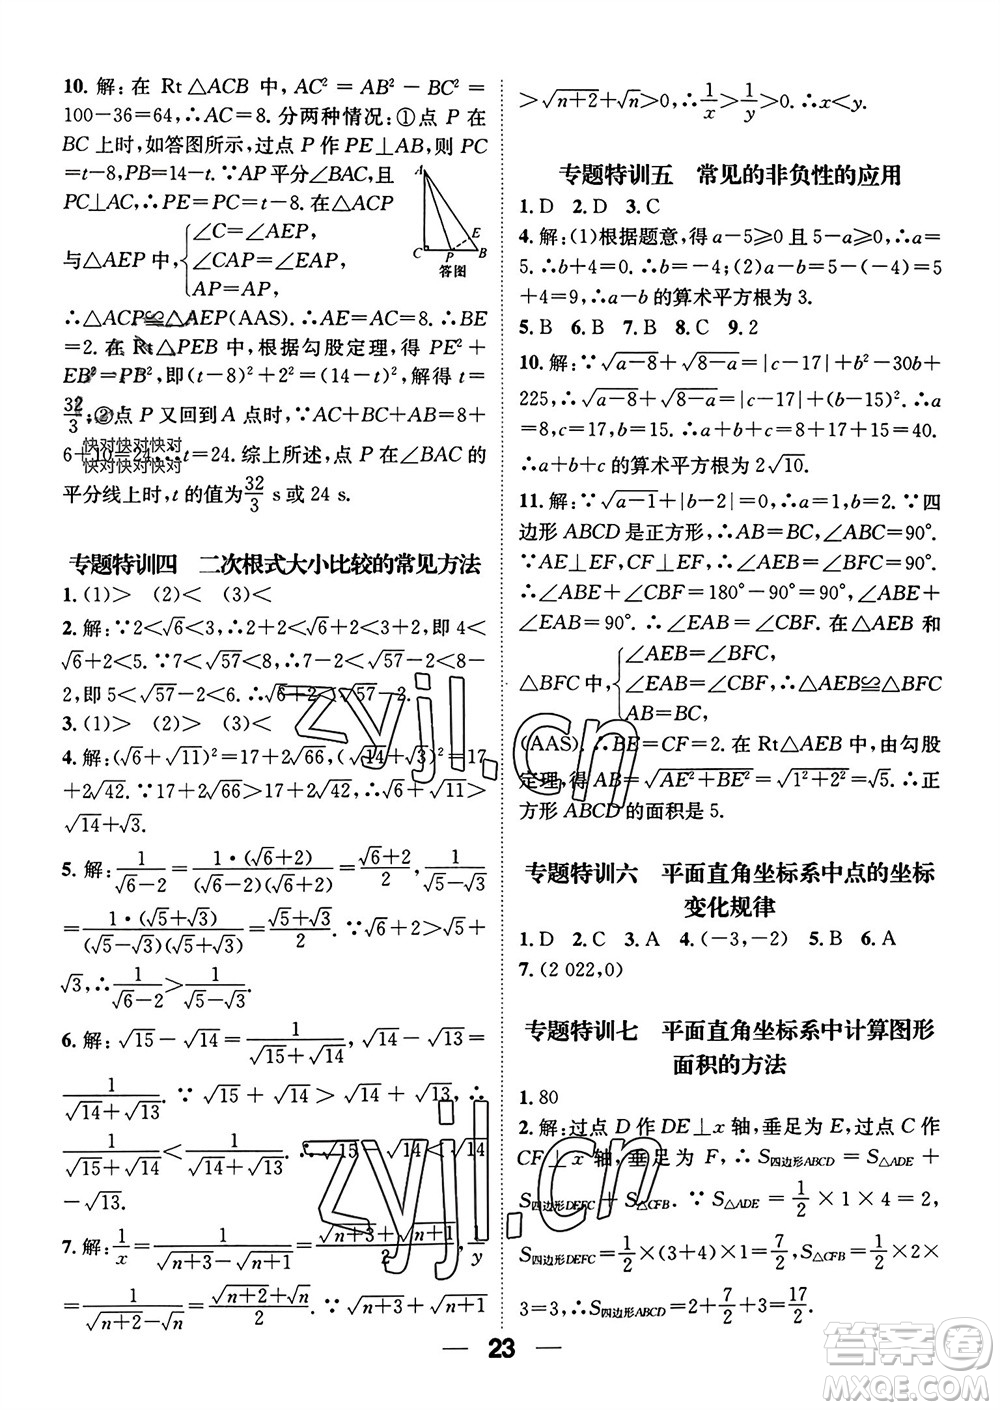 10. 解：在 Rt△ACB 中，AC² = AB² − BC² =
100−36=64，∴AC=8. 分两种情况：①点 P 在
BC 上时，如答图所示，过点 P 作 PE⊥AB，则 PC
=t−8，PB=14−t. ∵AP 平分∠BAC，且
PC⊥AC，∴PC=PE=t−8. 在△ACP
与△AEP 中，{∠C=∠AEP，
∠CAP=∠EAP，
AP=AP，
C P B E
答图
∴△ACP≌△AEP(AAS). ∴AE=AC=8. ∴BE
=2. 在 Rt△PEB 中，根据勾股定理，得 PE²+
EB²=PB²，即(t−8)²+2²=(14−t)²，解得 t=
32/3；②点 P 又回到 A 点时，∵AC+BC+AB=8+
6+10=24，∴t=24. 综上所述，点 P 在∠BAC 的
快对快对快对
快对快对快对
平分线上时，t 的值为32/3 s 或 24 s.
专题特训四 二次根式大小比较的常见方法
1. (1)> (2)< (3)<
2. 解：∵2<√6<3，∴2+2<√6+2<3+2，即 4<
√6+2<5. ∵7<√57<8，∴7−2<√57−2<8−
2，即 5<√57−2<6. ∴√6+2<√57−2.
3. (1)> (2)> (3)<
4. 解：(√6+√11)²=17+2√66，(√14+√3)²=17
+2√42. ∵17+2√66>17+2√42，∴√6+√11>
√14+√3.
5. 解：1/(√6−2)=1·(√6+2)/((√6−2)(√6+2))=(√6+2)/2，1/(√5−√3)
=1·(√5+√3)/((√5−√3)(√5+√3))=(√5+√3)/2. ∵√6+2>√5+
√3，∴1/(√6−2)>1/(√5−√3).
6. 解：√15−√14=1/(√15+√14)，√14−√13=
1/(√14+√13). ∵√15+√14>√14+√13，∴
1/(√15+√14)<1/(√14+√13). ∴√15−√14<√14
−√13.
7. 解：1/x=1/(√(n+3)−√(n+1))=(√(n+3)+√(n+1))/2，1/y
=1/(√(n+2)−√n)=(√(n+2)+√n)/2. ∵√(n+3)+√(n+1)
>√(n+2)+√n>0，∴1/x>1/y>0. ∴x<y.
专题特训五 常见的非负性的应用
1. D 2. D 3. C
4. 解：(1)根据题意，得 a−5≥0 且 5−a≥0. ∴a=
5. ∴b+4=0. ∴b=−4；(2)a−b=5−(−4)=5
+4=9，∴a−b 的算术平方根为 3.
5. B 6. B 7. B 8. C 9. 2
10. 解：∵√(a−8)+√(8−a)=|c−17|+b²−30b+
225，∴√(a−8)+√(8−a)=|c−17|+(b−15)². ∴a
=8，b=15，c=17. ∴a+b+c=8+17+15=40.
∴a+b+c 的算术平方根为 2√10.
11. 解：∵√(a−1)+|b−2|=0，∴a=1，b=2. ∵四
边形 ABCD 是正方形，∴AB=BC，∠ABC=90°.
∵AE⊥EF，CF⊥EF，∴∠AEB=∠BFC=90°.
∴∠ABE+∠CBF=180°−90°=90°. ∵∠ABE+
∠EAB=90°，∴∠EAB=∠CBF. 在△AEB 和
△BFC 中，{∠AEB=∠BFC，
∠EAB=∠CBF，∴△AEB≌△BFC
AB=BC，
(AAS). ∴BE=CF=2. 在 Rt△AEB 中，由勾股
定理，得 AB=√(AE²+BE²)=√(1²+2²)=√5. ∴正
方形 ABCD 的面积是 5.
专题特训六 平面直角坐标系中点的坐标
变化规律
1. D 2. C 3. A 4. (−3，−2) 5. B 6. A
7. (2 022，0)
专题特训七 平面直角坐标系中计算图形
面积的方法
1. 80
2. 解：过点 D 作 DE⊥x 轴，垂足为 E，过点 C 作
CF⊥x 轴，垂足为 F，∴S四边形ABCD=S△ADE+
S四边形DEFC+S△CFB. ∵S△ADE=1/2×1×4=2，
S四边形DEFC=1/2×(3+4)×1=7/2，S△CFB=1/2×2×
3=3，∴S四边形ABCD=2+7/2+3=17/2.
zyjl.cn
zyjl.cn
— 23 —
答案圈
MXQE.COM